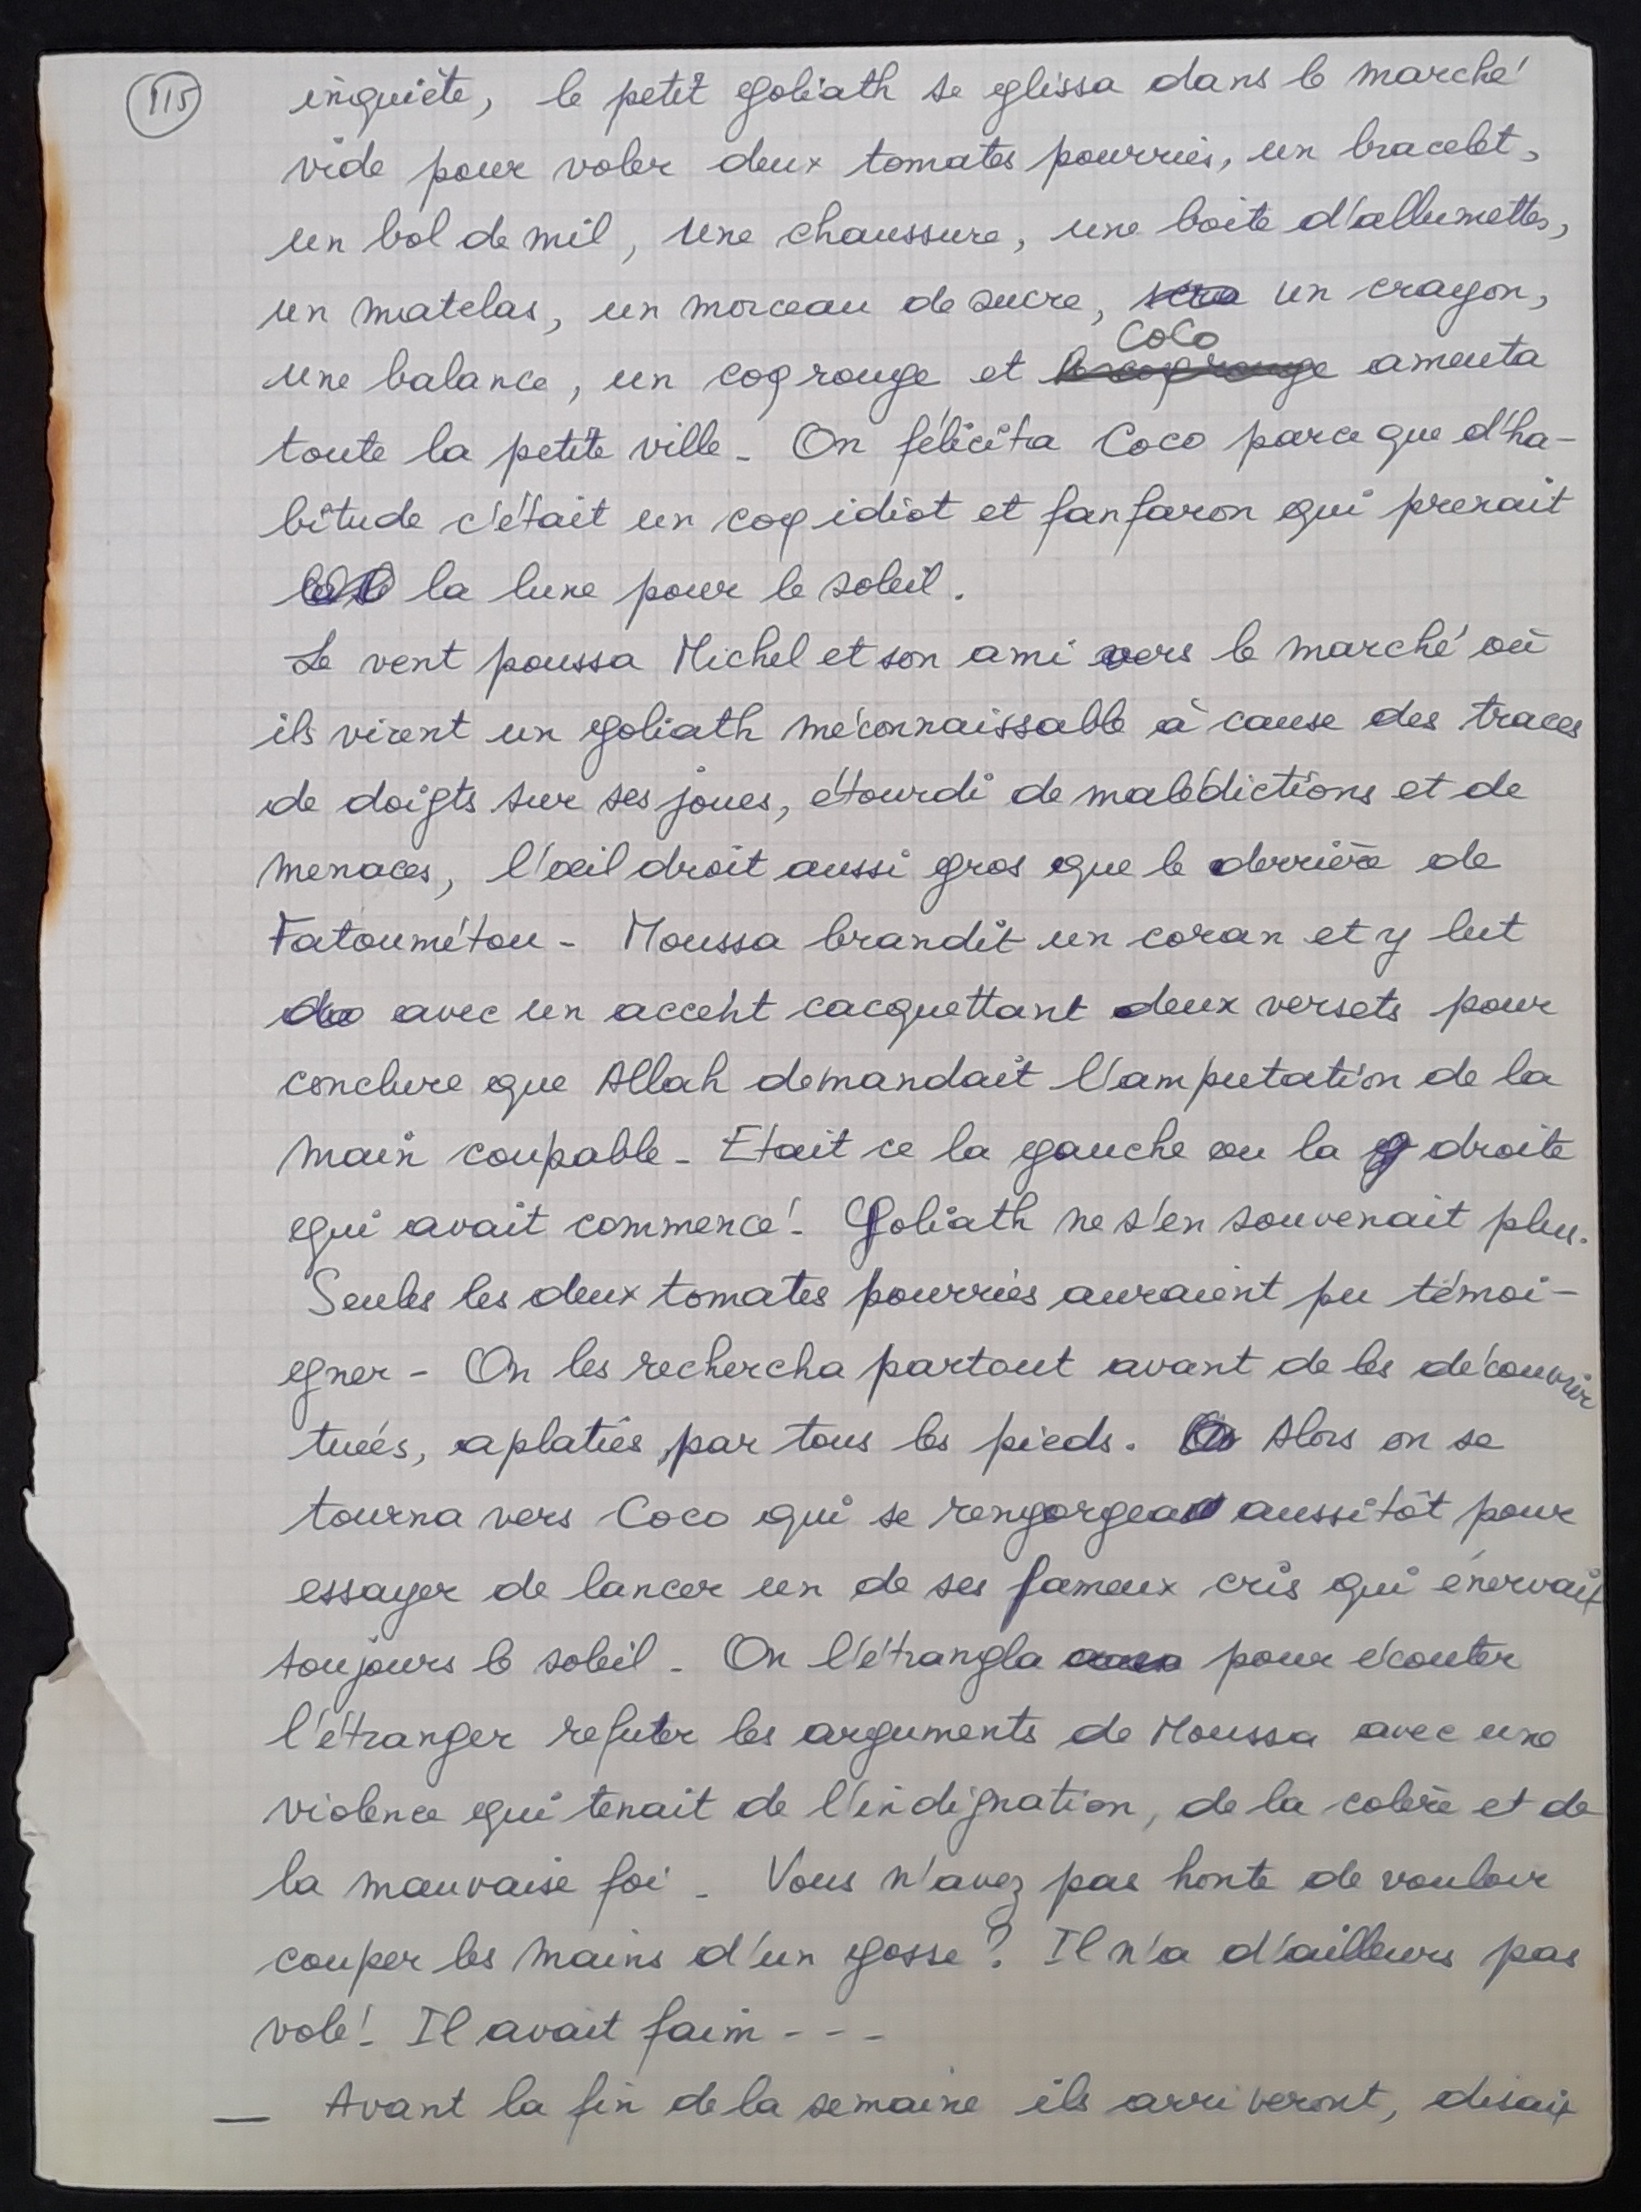 115
inquiète, le petit goliath se glissa dans le marché
vide pour voler deux tomates pourries, un bracelet,
un bol de mil, une chaussure, une boite d'allumettes,
un matelas, un morceau de sucre, un crayon,
CoCo
une balance, un coq rouge et le coq rouge ameuta
toute la petite ville - On félicita Coco parce que d'ha-
bitude c'était un coq idiot et fanfaron qui prenait
la lune pour le soleil.
Le vent poussa Michel et son ami vers le marché où
ils virent un goliath méconnaissable à cause des traces
de doigts sur ses joues, étourdi de malédictions et de
menaces, l'œil droit aussi gros que le derrière de
Fatoumétou - Moussa brandit un coran et y lut
avec un accent cacquettant deux versets pour
conclure que Allah demandait l'amputation de la
main coupable - Etait ce la gauche ou la droite
qui avait commencé - Goliath ne s'en souvenait plus.
Seules les deux tomates pourries auraient pu témoi-
gner - On les rechercha partout avant de les découvrir
tuées, aplaties par tous les pieds. Alors on se
tourna vers Coco qui se rengorgea aussitôt pour
essayer de lancer un de ses fameux cris qui énervait
toujours le soleil - On l'étrangla pour écouter
l'étranger refuter les arguments de Moussa avec une
violence qui tenait de l'indignation, de la colère et de
la mauvaise foi - Vous n'avez pas honte de vouloir
couper les mains d'un gosse? Il n'a d'ailleurs pas
volé! Il avait faim - - -
— Avant la fin de la semaine ils arriveront, disait